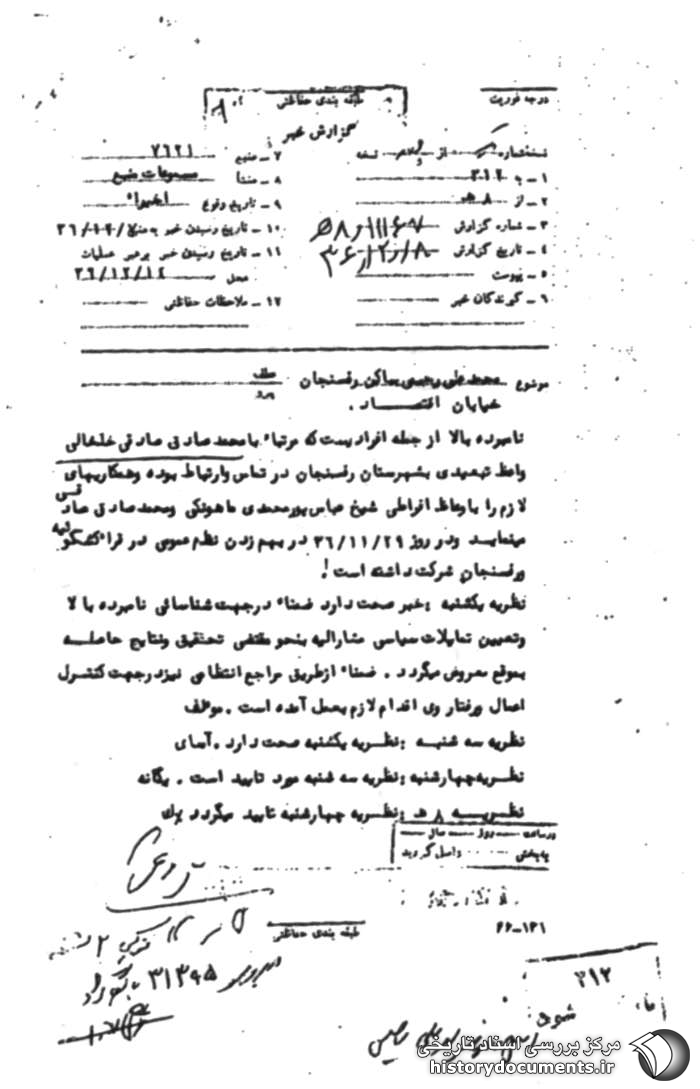 درجه فوریت
طبقه بندی حفاظتی
گزارش خبر
نسخه شماره از نسخه
۱ ـ به ۳۱۲
۲ ـ از ۸ هـ
۳ ـ شماره گزارش
۴ ـ تاریخ گزارش
۵ ـ پیوست
۶ ـ گیرندگان خبر
۷ ـ منبع ۷۶۲۱
۸ ـ منشأ مسموعات منبع
۹ ـ تاریخ وقوع اخیراً
۱۰ ـ تاریخ رسیدن خبر به منبع
۱۱ ـ تاریخ رسیدن خبر به رهبر عملیات
محل ۳۶/۱۲/۱۴
۱۲ ـ ملاحظات حفاظتی
موضوع محمد علی رحیمی ساکن رفسنجان
خیابان اقتصاد .
عطف
پیرو
نامبرده بالا از جمله افرادیست که مرتباً با محمد صادق صادقی خلخالی
واعظ تبعیدی بشهرستان رفسنجان در تماس وارتباط بوده وهمکاریهای
لازم را باوعاظ افراطی شیخ عباس پورمحمدی ماهونکی ومحمد صادق صادقی
مینماید ودر روز ۳۶/۱۱/۲۹ در بهم زدن نظم عمومی در قرائ کشکوئیه
ورفسنجان شرکت داشته است !
نظریه یکشنبه : خبر صحت دارد ضمناً درجهت شناسائی نامبرده بالا
وتعیین تمایلات سیاسی مشارالیه بنحو مقتضی تحقیق ونتایج حاصله
بموقع معروض میگردد . ضمناً ازطریق مراجع انتظامی نیزدرجهت کنترل
اعمال ورفتار وی اقدام لازم بعمل آمده است . موظف
نظریه سه شنبه : نظریه یکشنبه صحت دارد . آسای
نظریه چهارشنبه : نظریه سه شنبه مورد تایید است . یگانه
نظریه ۸ هـ : نظریه چهارشنبه تایید میگردد
درساعت روز سال
به بخش واصل گردید
طبقه بندی حفاظتی
۶۶-۱۲۱
۳۱۲
۳۱۳۹۵
مرکز بررسی اسناد تاریخی
historydocuments.ir